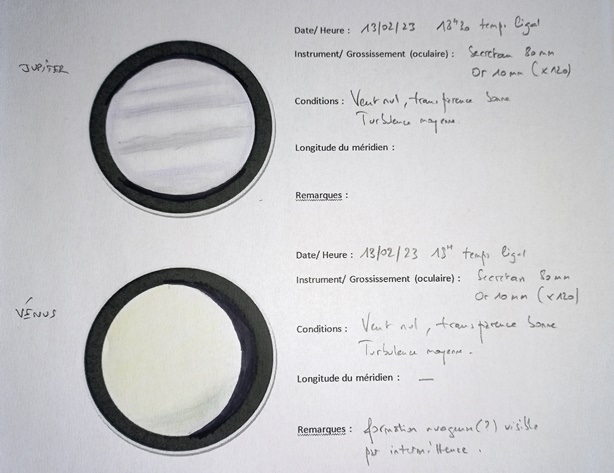 JUPITER
Date/ Heure : 13/02/23 temps légal
Instrument/ Grossissement (oculaire) : Secretan 80mm
Or 10mm (x120)
Conditions : Vent nul, transparence bonne
Turbulence moyenne.
Longitude du méridien :
Remarques :
VÉNUS
Date/ Heure : 13/02/23 temps légal
Instrument/ Grossissement (oculaire) : Secretan 80mm
Or 10mm (x120)
Conditions : Vent nul, transparence bonne
Turbulence moyenne.
Longitude du méridien : —
Remarques : formation nuageuse(?) visible
par intermittence.